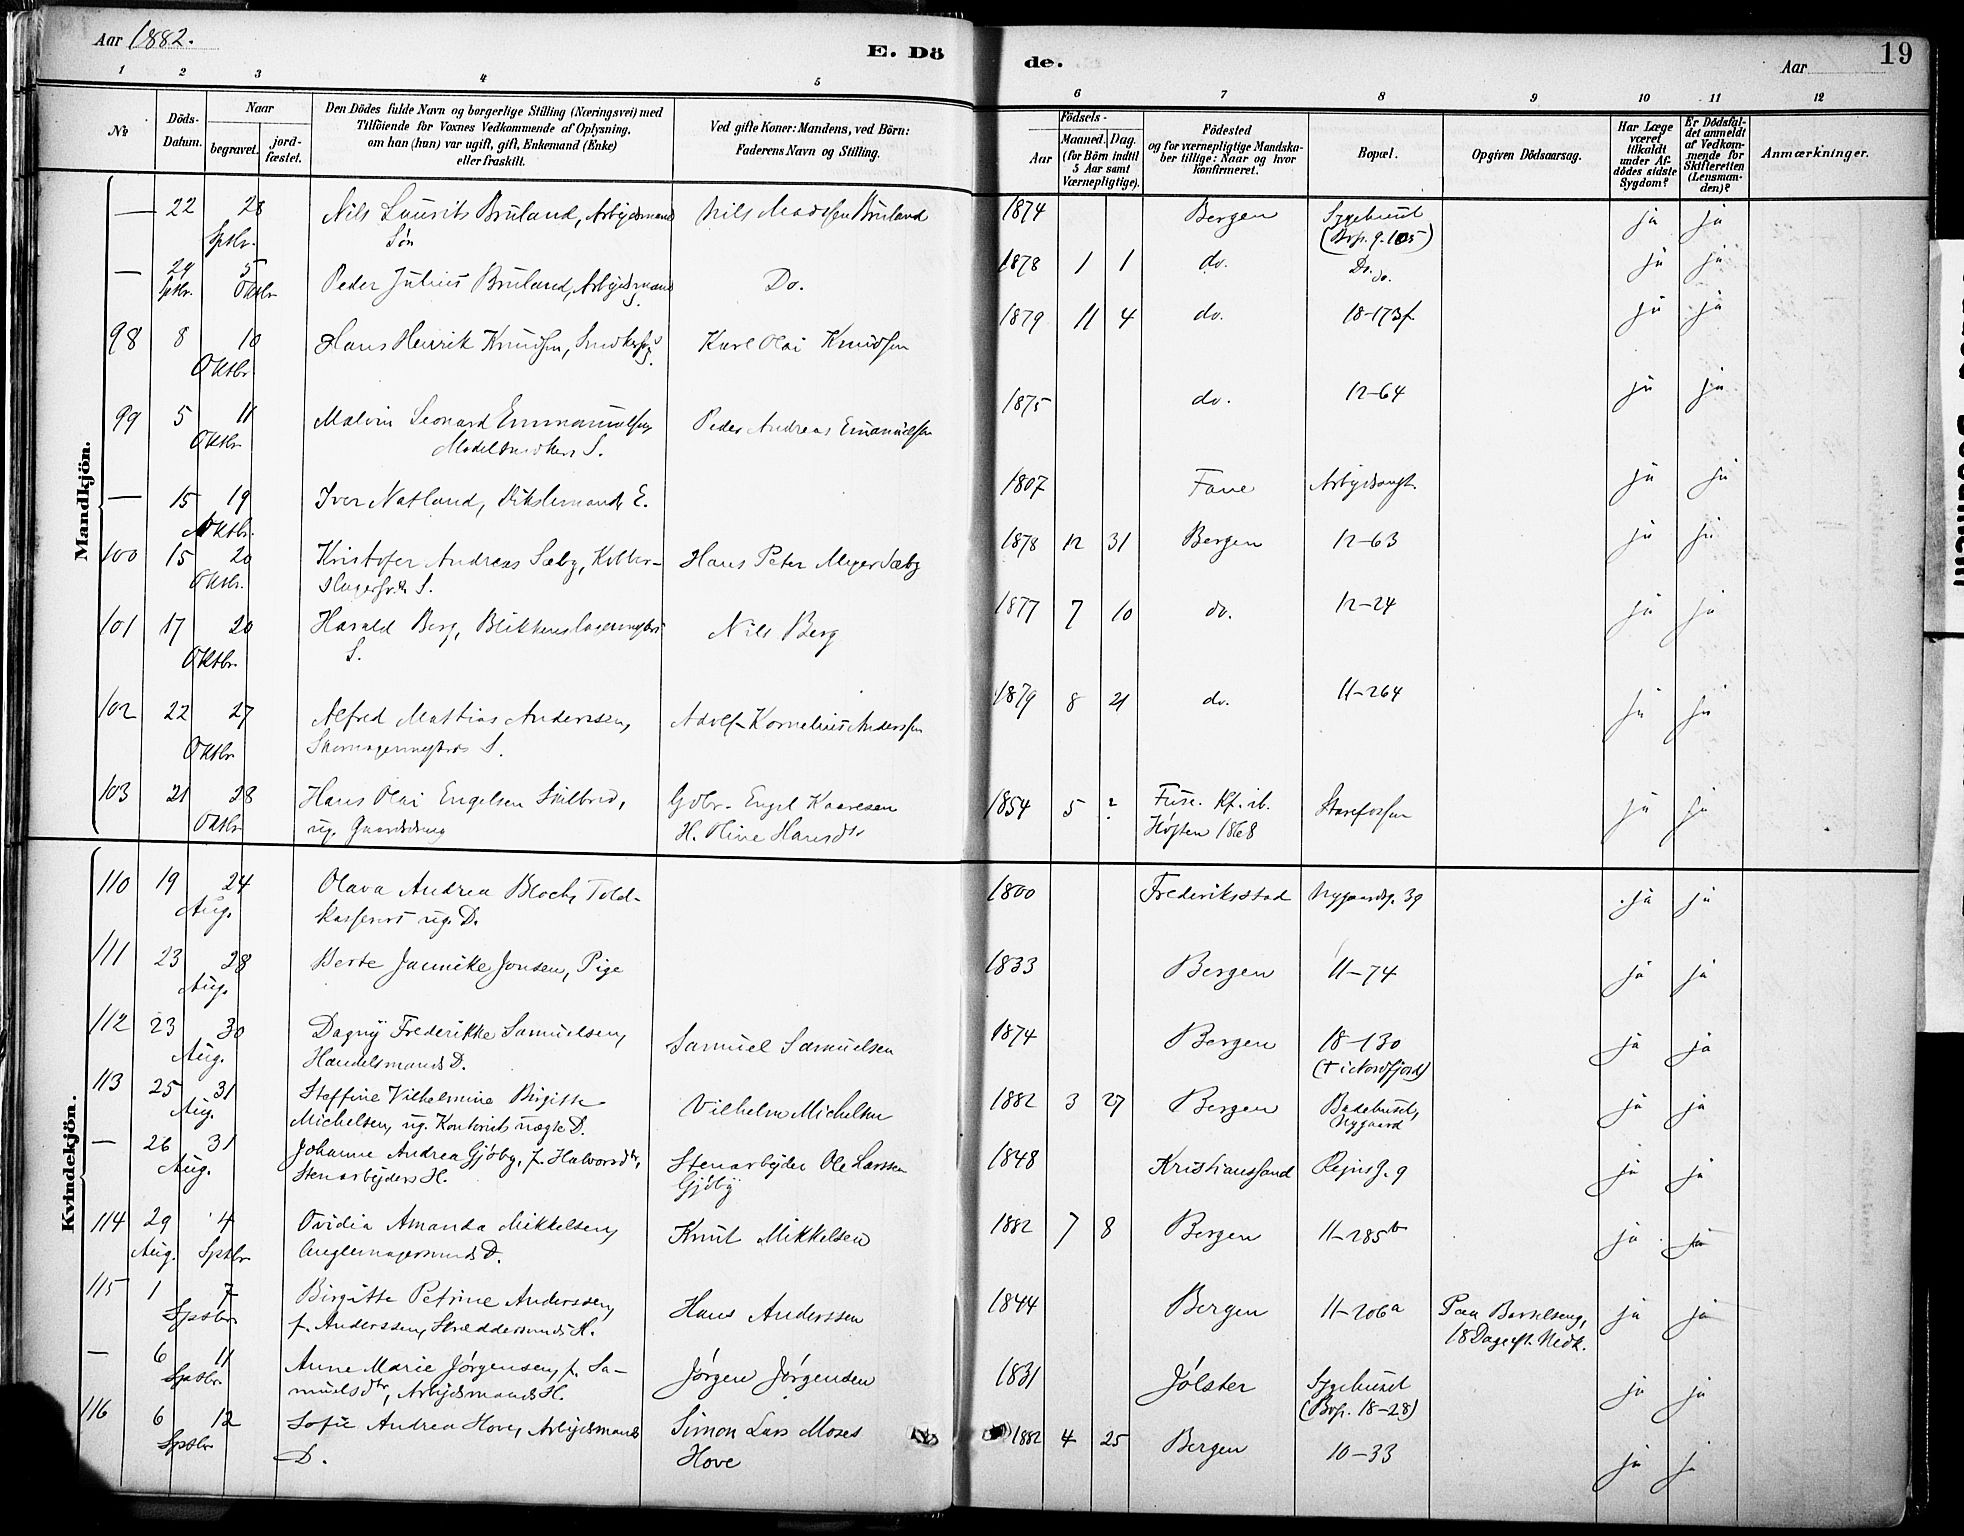 Aar 1882. E. Dö de. Aar 19
1 2 3 4 5 6 7 8 9 10 11 12
No
Döds-Datum.
Naar begravet. jordfæstet.
Den Dödes fulde Navn og borgerlige Stilling (Næringsvei) med
Tilföiende for Voxnes Vedkommende af Oplysning,
om han (hun) var ugift, gift, Enkemand (Enke)
eller fraskilt.
Ved gifte Koner: Mandens, ved Börn:
Faderens Navn og Stilling.
Födsels-
Aar Maaned. Dag.
(for Börn indtil
5 Aar samt
Værnepligtige).
Födested
og for værnepligtige Mandska-
ber tillige: Naar og hvor
konfirmeret.
Bopæl.
Opgiven Dödsaarsag.
Har Læge
været
tilkaldt
under Af-
dödes sidste
Sygdom?
Er Dödsfal-
det anmeldt
af Vedkom-
mende for
Skifteretten
(Lensman-
den)?
Anmærkninger.
Mandkjön.
— 22 28 Nils Laurits Bruland, Arbejdsmands Nils Madssen Bruland 1874 Bergen Sygehuset ja ja
Sptbr. Søn
— 29 5 Peder Julius Bruland, Arbejdsmands Do. 1878 1 1 do. Do. ja ja
Sptbr. Oktbr. S. do.
98 8 10 Hans Henrik Knudsen, Karl Olai Knudsen 1879 11 4 do. 18-173f. ja ja
Oktbr.
99 5 11 Malvin Leonard Emmanuelsen, Peder Andreas Emanuelsen 1875 do. 12-64 ja ja
Oktbr. Modelsnedkers S.
— 15 19 Iver Natland, E. 1807 Fane Arbejdsanst. ja ja
Oktbr.
100 15 20 Kristofer Andreas Sæby, Kobber- Hans Peter Meyer Sæby 1878 12 31 Bergen 12-63 ja ja
Oktbr. S.
101 17 20 Harald Berg, Blikkenslagermesters Nils Berg 1877 7 10 do. 12-24 ja ja
Oktbr. S.
102 22 27 Alfred Mathias Anderssen, Adolf Kornelius Anderssen 1879 8 21 do. 11-264 ja ja
Oktbr. Skomagermesters S.
103 21 28 Hans Olai Engelsen Gdbr. Engel Kaaresen 1854 5 ? Fuse. Kf. ib. Starefossen ja ja
Oktbr. ug. Gaardsdreng H. Oline Hansdtr Høsten 1868
Kvindekjön.
110 19 24 Olava Andrea Bloch, Told- 1800 Frederiksstad Nygaardsg. 39 ja ja
Aug. kasserers ug. D.
111 23 28 Berte Jannike Jonsen, Pige 1833 Bergen 11-74 ja ja
Aug.
112 23 30 Dagny Frederikke Samuelsen, Samuel Samuelsen 1874 Bergen 18-130 ja ja
Aug. Handelsmands D. († i Nordfjord)
113 25 31 Steffine Vilhelmine Birgitte Vilhelm Michelsen 1882 3 27 Bergen Badehuset, ja ja
Aug. Michelsen, ug. Kontorists uægte D. Nygaard
— 26 31 Johanne Andrea Gjøby, f. Halvorsdtr, Stenarbejder Ole Larssen 1848 Kristianssand 9 ja ja
Aug. Stenarbejders H. Gjøby
114 29 4 Ovidia Amanda Mikkelsen, Knut Mikkelsen 1882 7 8 Bergen 11-285b ja ja
Aug. Sptbr. D.
115 1 7 Birgitte Petrine Anderssen, Hans Anderssen 1844 Bergen 11-206a Paa Barselseng, ja ja
Sptbr. f. Anderssen, Skræddersvends H. 18 Dage eft. Nedk.
— 6 11 Anne Marie Jørgensen, f. Sa- Jørgen Jørgensen 1831 Jølster Sygehuset ja ja
Sptbr. muelsdtr, Arbejdsmands H. (Bop. 18-28)
116 6 12 Sofie Andrea Hove, Arbejdsmands Simon Lars Moses 1882 4 25 Bergen 10-33 ja ja
Sptbr. D. Hove